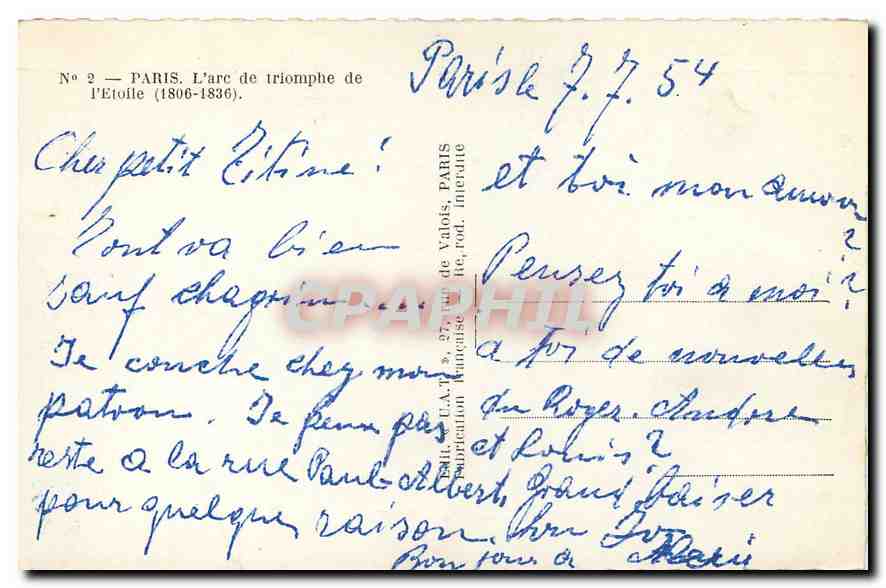 No 2 — PARIS. L'arc de triomphe de
l'Etoile (1806-1836).
Paris le 7.7.54
Cher petit Titine!
Tout va bien
sauf chagrin ...
Je couche chez mon
patron. Je peux pas
reste a la rue Paul-Albert
pour quelques raison.
et toi mon amour
? ? ?
Pensez toi a moi
a toi de nouvelles
du Roger. Andore
et Louis?
Grand baiser
ton
Bon jour a
Edit. U.A.T., 27, rue de Valois, PARIS
Fabrication Française Re, rod. interdite
CPAPHIL